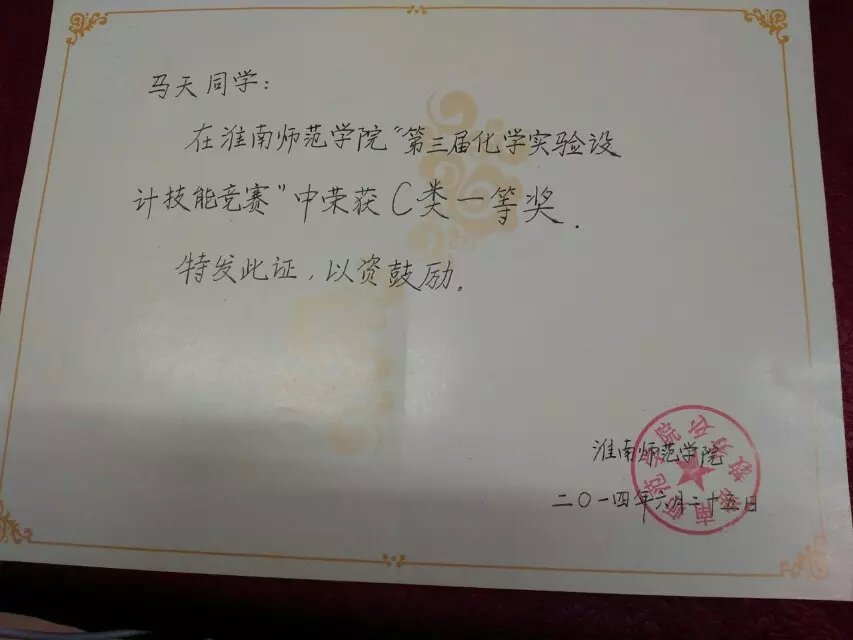 马天同学：
在淮南师范学院“第三届化学实验设
计技能竞赛”中荣获C类一等奖.
特发此证，以资鼓励。
淮南师范学院
二〇一四年六月二十五日